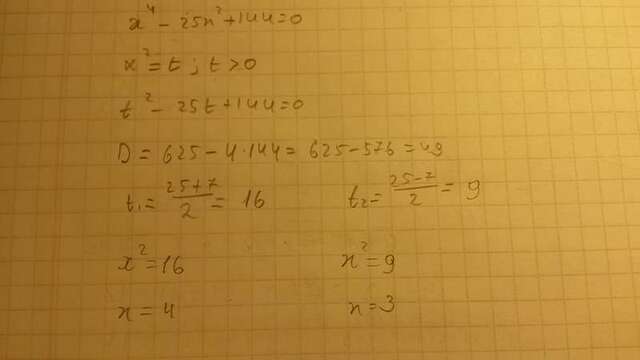 x⁴ - 25x² + 144 = 0
x² = t ; t > 0
t² - 25t + 144 = 0
D = 625 - 4·144 = 625 - 576 = 49
t₁ = (25+7)/2 = 16 t₂ = (25-7)/2 = 9
x² = 16 x² = 9
x = 4 x = 3